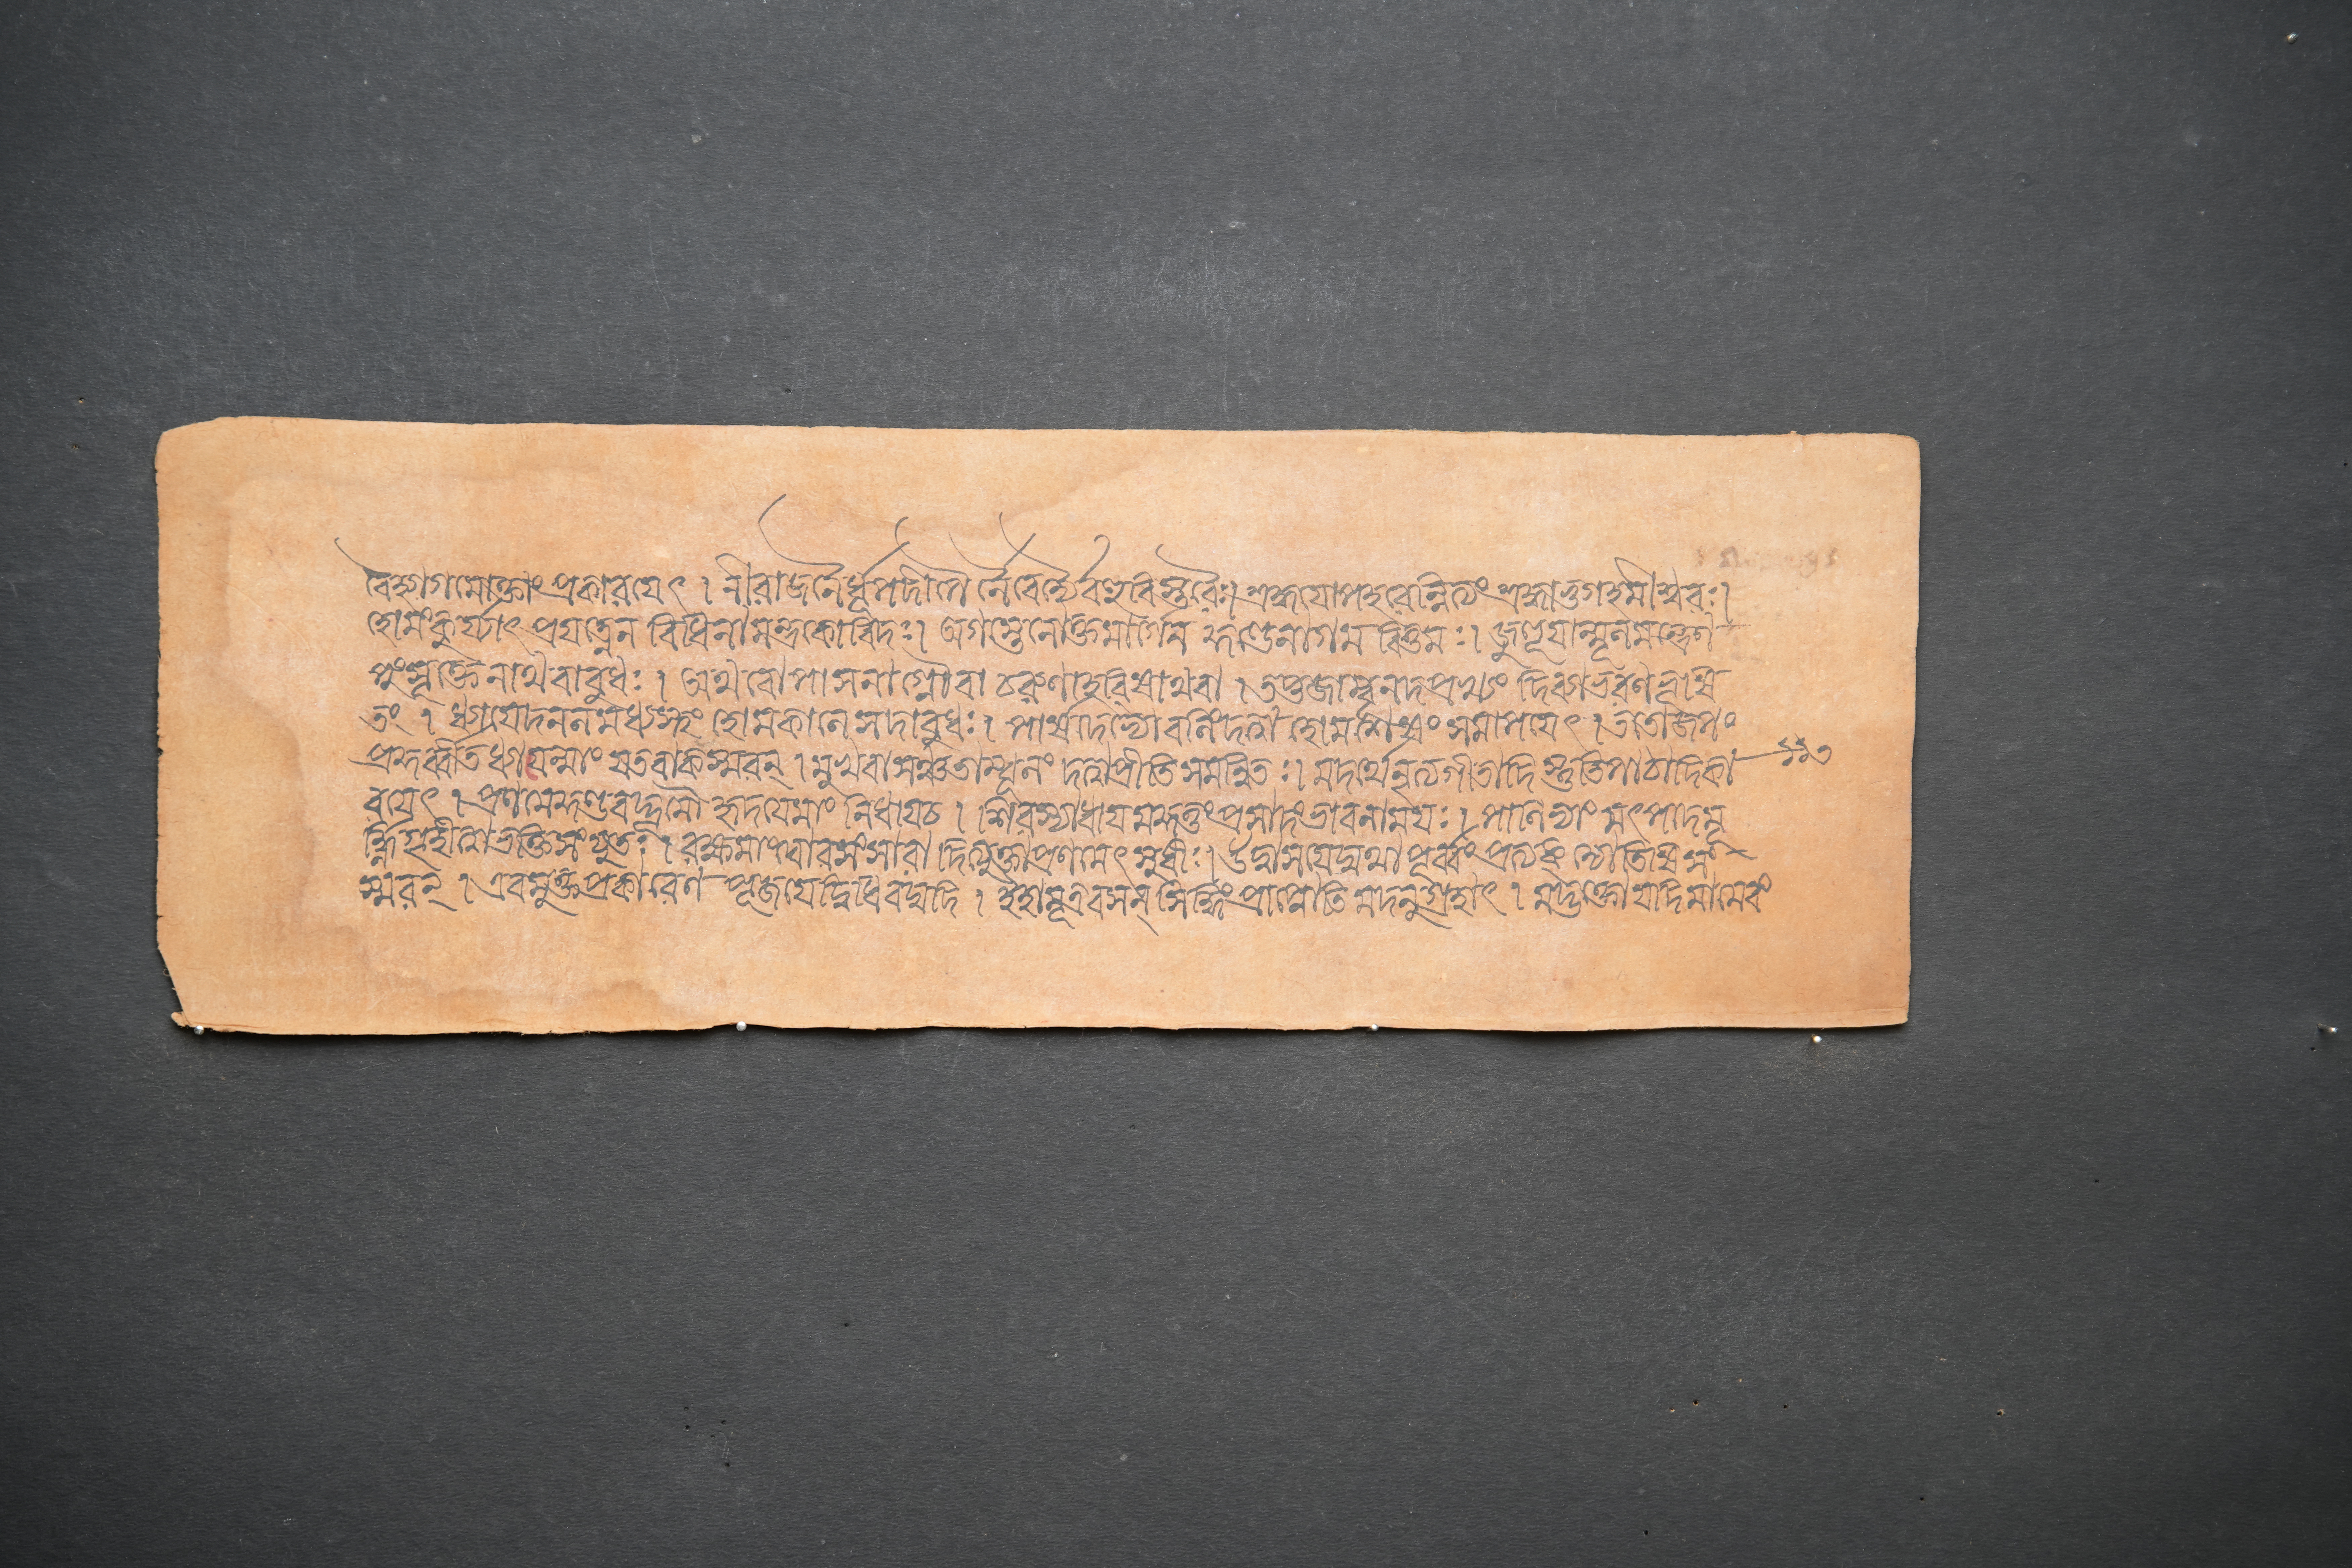 বৈহ্যাগমোক্তাং প্রকারযেৎ । নীরাজনৈর্ধূপদীপৈর্নৈবেদ্যৈর্বহুবিস্তরৈঃ। শ্রদ্ধযোপহরেন্নিত্যং শ্রদ্ধাভুগহমীশ্বরঃ।
হোমং কুর্য্যাৎ প্রযত্নেন বিধিনা মন্ত্রকোবিদঃ। অগস্ত্যেনোক্তমার্গেন কুণ্ডেনাগমবিত্তমঃ। জুহুযান্মূলমন্ত্রেণ
পুংসূক্তেনাথবাবুধঃ । অথবৌপাসনাগ্নৌবা চরুণাহবিষাথবা । তপ্তজাম্বূনদপ্রখ্যং দিব্যাভরণভূষি
তং । ধ্যাযেদনলমধ্যস্থং হোমকালে সদাবুধঃ। পার্ষদেভ্যো বলিংদত্বা হোমশেষং সমাপযেৎ । ততোজপং
প্রকুর্ব্বীত ধ্যাযেন্মাং যতবাক্স্মরন্ । মুখবাসঞ্চতাম্বূলং দত্বাপ্রীতিসমন্বিতঃ। মদর্থেনৃত্যগীতাদি স্তুতিপাঠাদিকা
রযেৎ । প্রণমেদ্দণ্ডবদ্ভূমৌ হৃদযেমাং নিধাযচ । শিরস্যাধায মদ্দত্তংপ্রসাদংভাবনাময়ঃ। পাণিভ্যাং মৎপাদমূ
র্দ্ধ্নিগৃহীত্বাভক্তিসংযুতঃ। রক্ষমাংঘোরসংসারাদিত্যুক্ত্বাপ্রণমেৎসুধীঃ। উদ্বাসযেদ্যথাপূর্ব্বং প্রত্যগ্জ্যোতিষিসং
স্মরন্ । এবমুক্তপ্রকারেণ পূজযেদ্বিধিবদ্যদি । ইহামূত্রৈবসন্ সিদ্ধিংপ্রাপ্নোতি মদনুগ্রহাৎ । মদ্ভক্তোযদিমামেবং